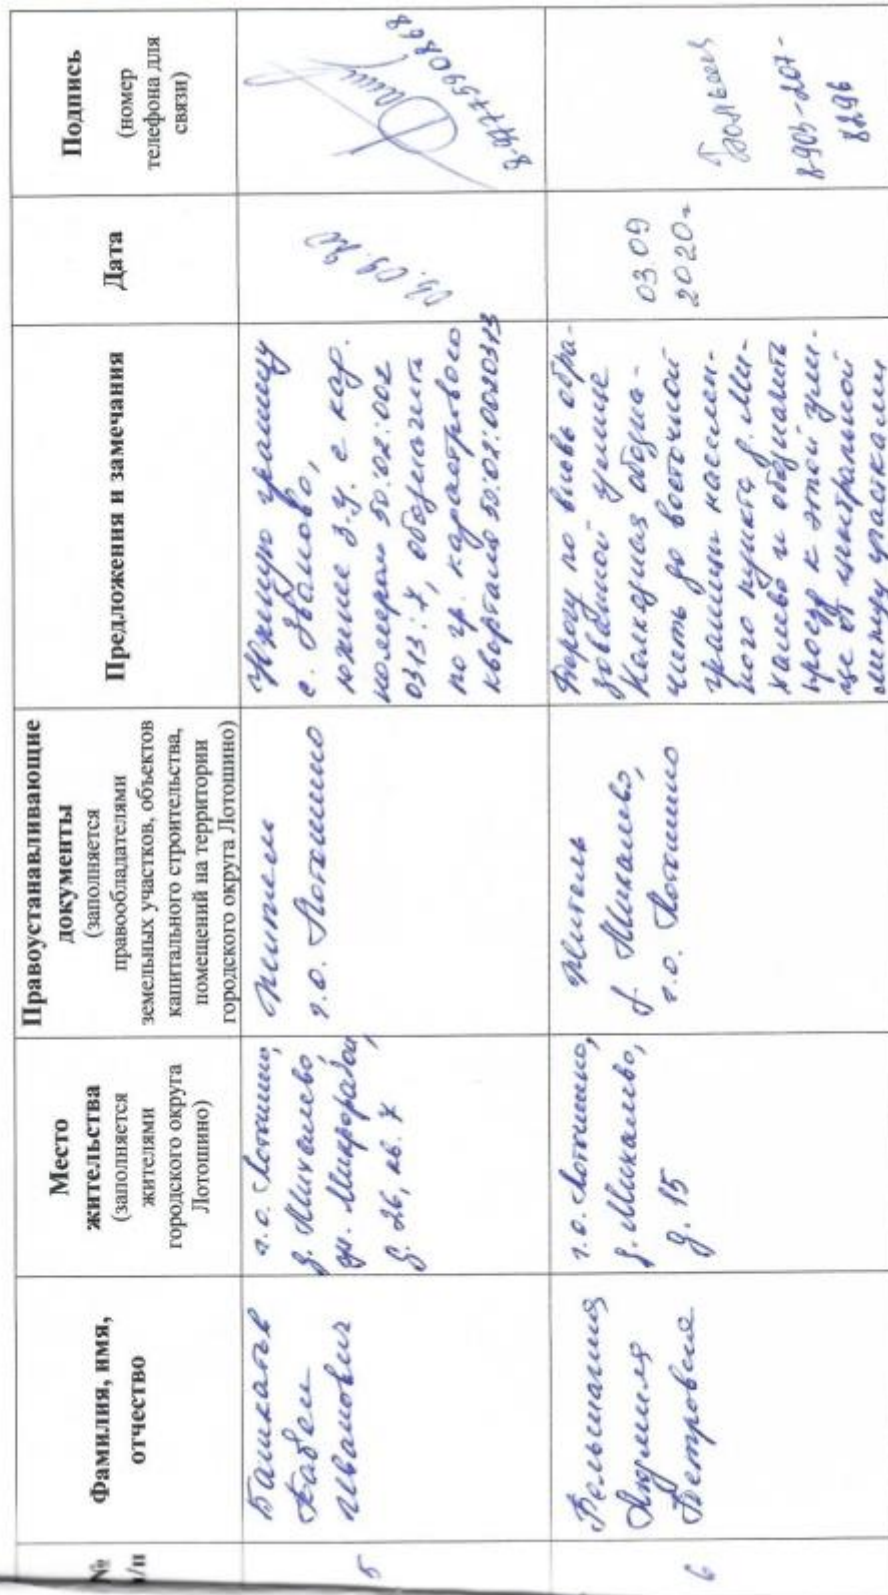 №
п/п
Фамилия, имя,
отчество
Место
жительства
(заполняется
жителями
городского округа
Лотошино)
Правоустанавливающие
документы
(заполняется
правообладателями
земельных участков, объектов
капитального строительства,
помещений на территории
городского округа Лотошино)
Предложения и замечания
Дата
Подпись
(номер
телефона для
связи)
5
Иванович
г.о. Лотошино,
д. Михалево,
д. 26, кв. 7
житель
г.о. Лотошино
Южную границу
южнее з.у. с кад.
номером 50:02:002
0313:7, обозначить
по гр. кадастрового
квартала 50:02:0020313
03.09.20
6
Людмила
Петровна
г.о. Лотошино,
д. Михалево,
д. 15
житель
д. Михалево,
г.о. Лотошино
Дорогу по вновь обра-
зованной улице
Колхозная обозна-
чить до восточной
границы населен-
ного пункта д. Ми-
халево и обозначить
проезд к этой ули-
це от центральной
между участками
03.09
2020г
8-903-207-
8296